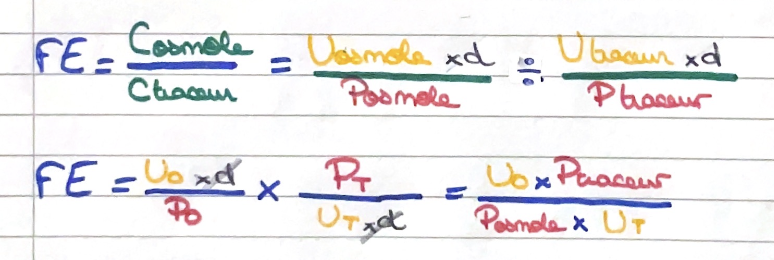 FE = Cosmole / Ctraceur = Uosmole x d / Posmole ÷ Utraceur x d / Ptraceur
FE = Uo x d / Po x PT / UT x d = Uo x Ptraceur / Posmole x UT